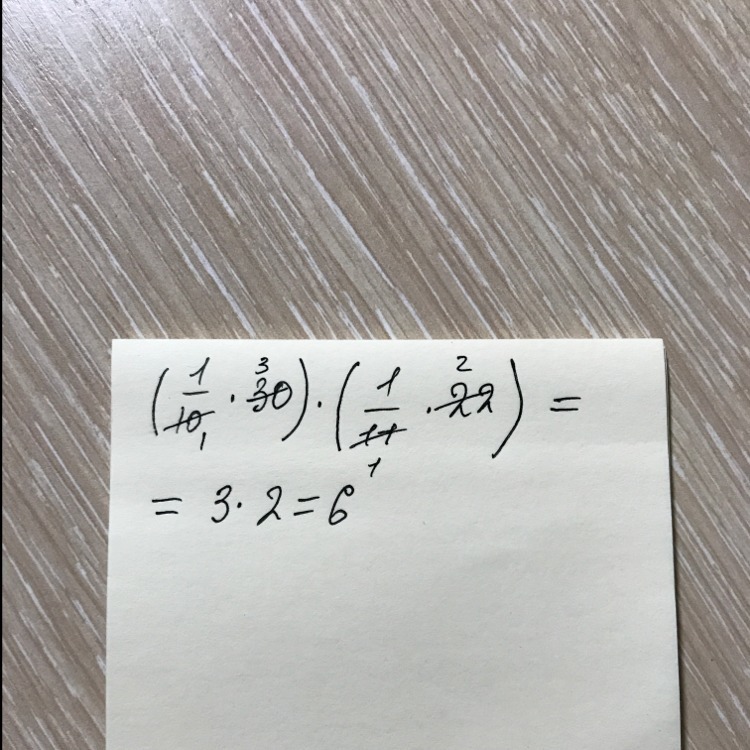 (1/10 1 · 30 3) · (1/11 1 · 22 2) =
= 3 · 2 = 6